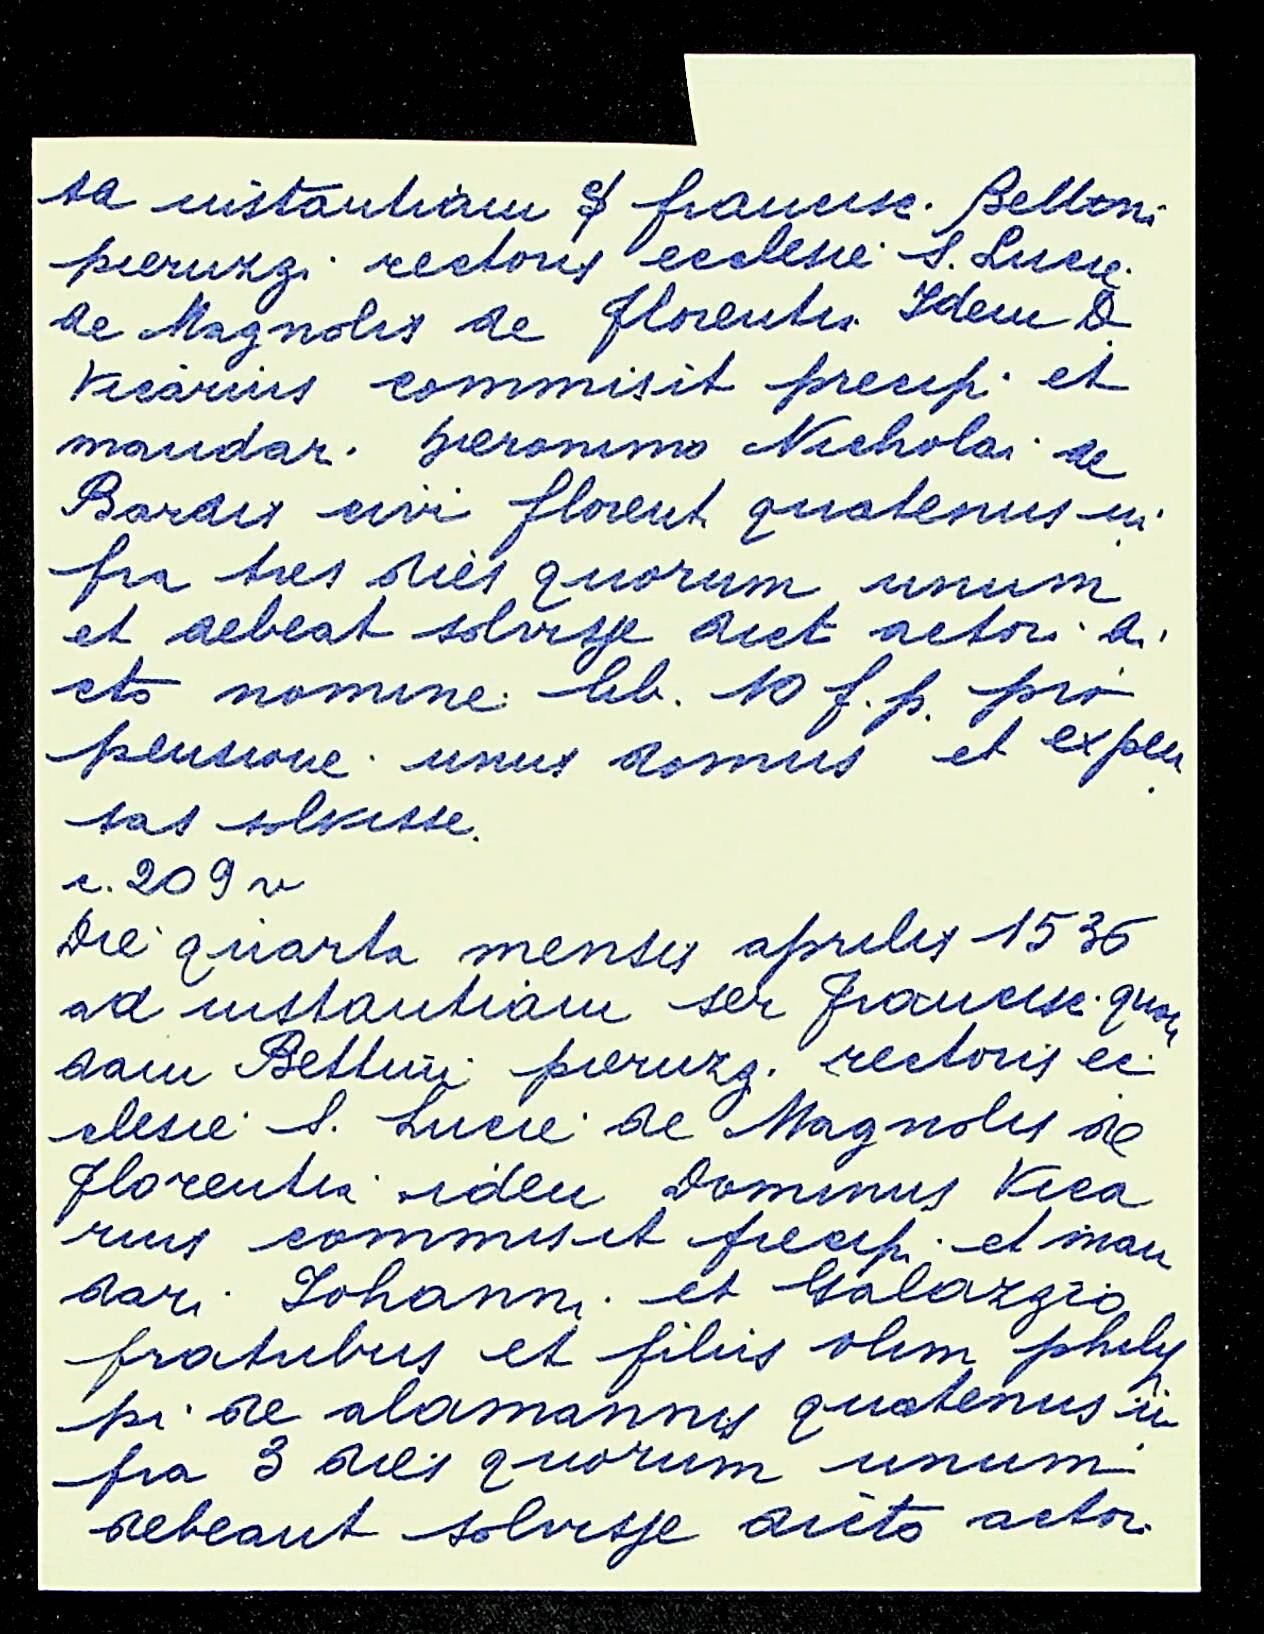 sa instantiam S/ francisc. Bettoni
pieruzzi rectoris ecclesie S. Lucie
de Magnolis de Florentia Idem D.
Vicarius commisit precip. et
mandar. Jeronimo Nicholai de
Bardis civi florent quatenus in
fra tres dies quorum unum
et debeat solvisse dict actori di
cto nomine lib. 10 f.p. pro
pensione unius domus et expen
sas solvisse.
c. 209 v
Die quarta mensis aprilis 1536
ad instantiam ser Francisc. quon
dam Bettini pieruzz. rectoris ec
clesie S. Lucie de Magnolis de
Florentia idem Dominus Vica
rius commisit precip. et man
dari Johanni et Galazzio
fratribus et filiis olim phily
pi de alamannis quatenus in
fra 3 dies quorum unum
debeant solvisse dicto actori